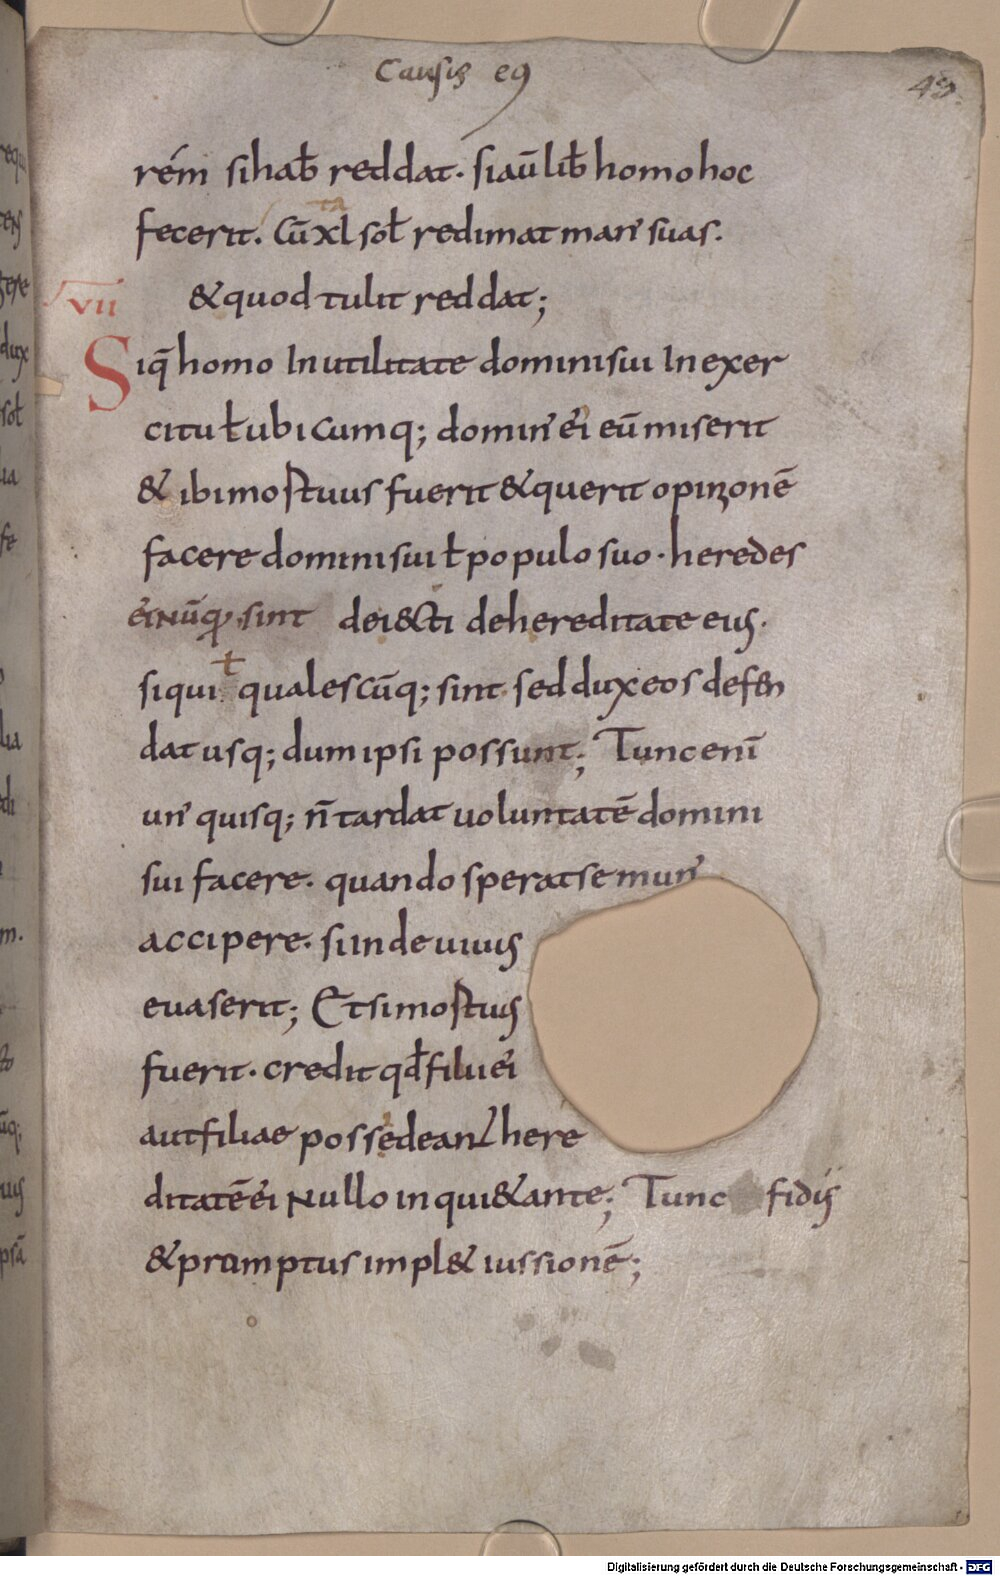 Causis eꝯ
49.
rém si hab̄ reddat. si aū lib̄ homo hoc
fecerit. Cū xl sol̄ redimat man' suas.
& quod tulit reddat;
vii
Si q̄ homo In utilitate domini sui In exer
citu ł ubicumq; domin' ei' eū miserit
& ibi mortuus fuerit & querit opinionē
facere domini sui ł populo suo. heredes
ei' nūq sint deiecti de hereditate eius.
si qui ł qualescūq; sint sed dux eos defen
dat usq; dum ipsi possunt; Tunc enī
un' quisq; n̄ tardat uoluntatē domini
sui facere. quando sperat se mun'
accipere. si inde uiuus
euaserit; Et si mortuus
fuerit. credit qd̄ filii ei'
aut filiae possedeant here
ditatē ei' Nullo inqui&ante; Tunc fidus
& promptus impl& iussionē;
Digitalisierung gefördert durch die Deutsche Forschungsgemeinschaft - DFG